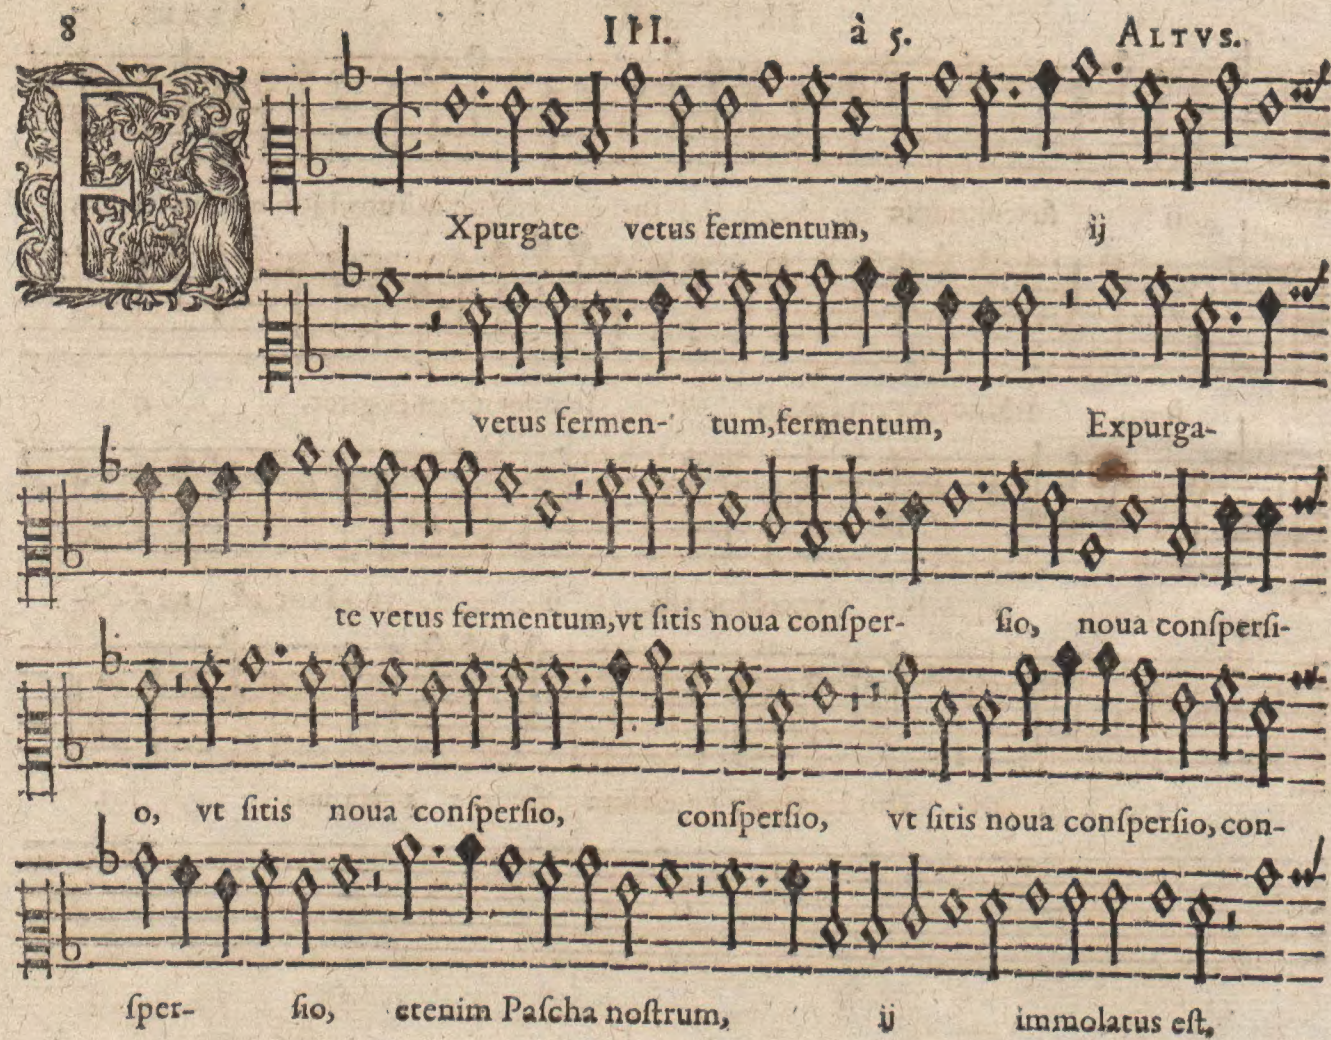 8 III. à 5. ALTVS.
EXpurgate vetus fermentum, ij
vetus fermen- tum, fermentum, Expurga-
te vetus fermentum, vt ſitis noua conſper- ſio, noua conſperſi-
o, vt ſitis noua conſperſio, conſperſio, vt ſitis noua conſperſio, con-
ſper- ſio, etenim Paſcha noſtrum, ij immolatus eſt,